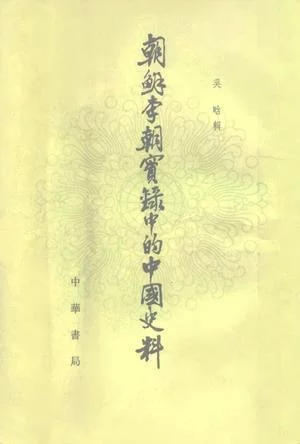 吳晗輯
朝鮮李朝實錄中的中國史料
中華書局